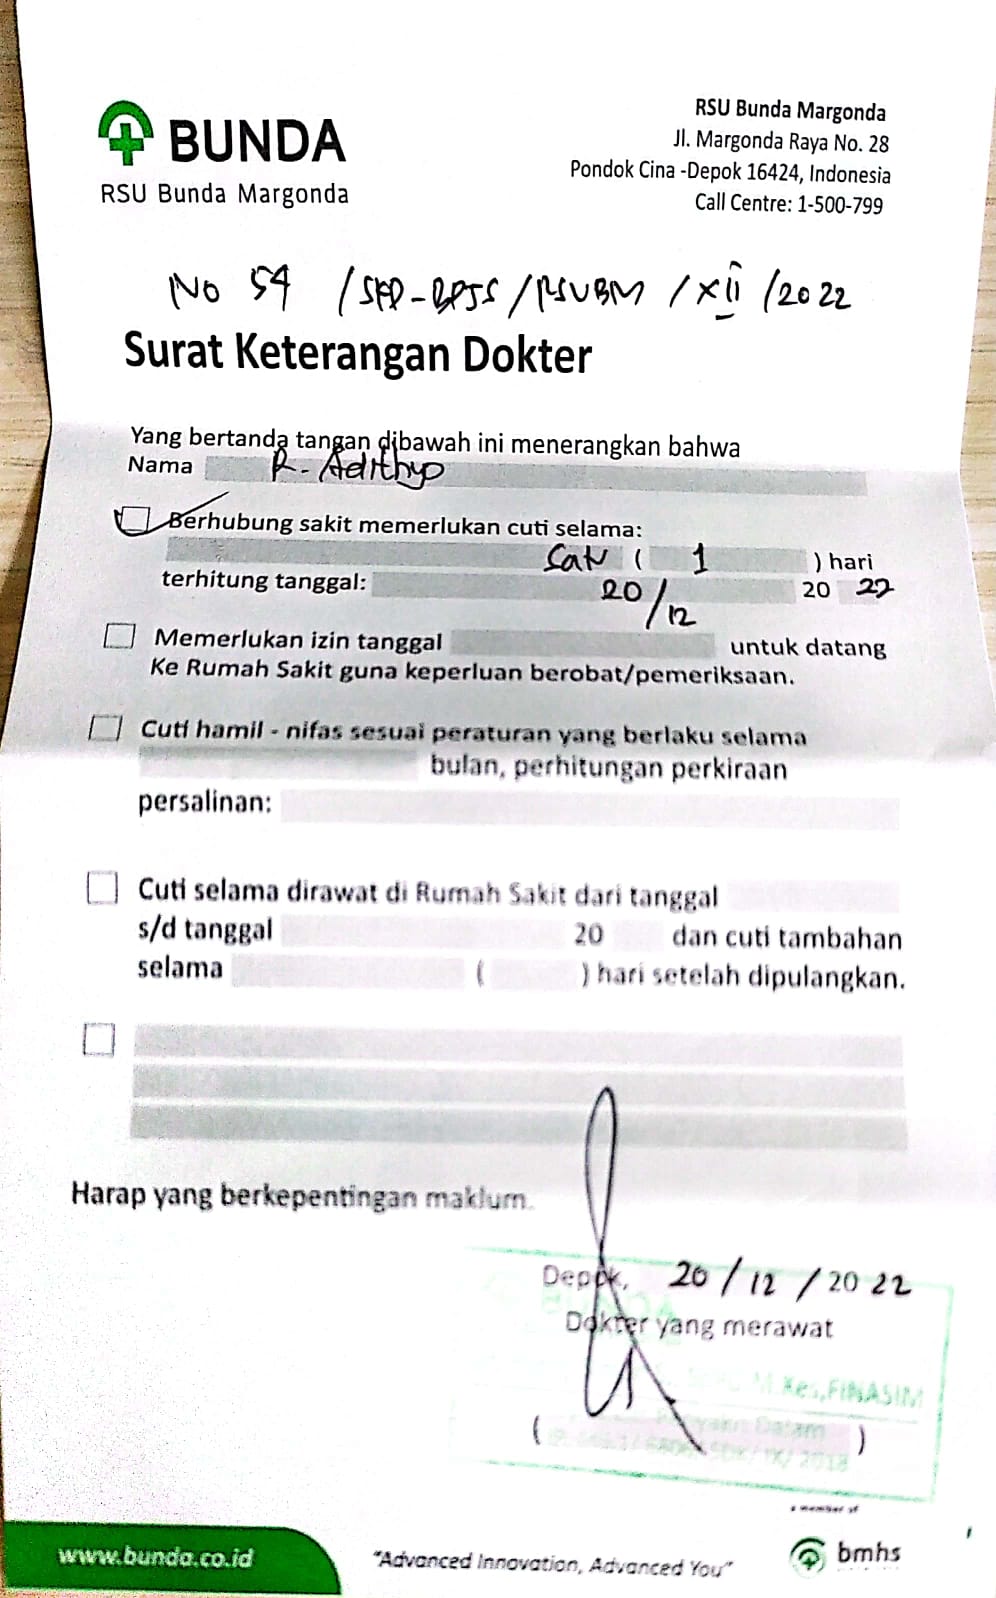 BUNDA
RSU Bunda Margonda
RSU Bunda Margonda
Jl. Margonda Raya No. 28
Pondok Cina -Depok 16424, Indonesia
Call Centre: 1-500-799
No 54 /SKD-BPJS/RSUBM/XII/2022
Surat Keterangan Dokter
Yang bertanda tangan dibawah ini menerangkan bahwa
Nama R. Adithyo
Berhubung sakit memerlukan cuti selama:
Satu ( 1 ) hari
terhitung tanggal: 20/12 20 22
Memerlukan izin tanggal untuk datang
Ke Rumah Sakit guna keperluan berobat/pemeriksaan.
Cuti hamil - nifas sesuai peraturan yang berlaku selama
bulan, perhitungan perkiraan
persalinan:
Cuti selama dirawat di Rumah Sakit dari tanggal
s/d tanggal 20 dan cuti tambahan
selama ( ) hari setelah dipulangkan.
Harap yang berkepentingan maklum.
Depok, 20/12/2022
Dokter yang merawat
M.Kes,FINASIM
Penyakit Dalam
( )
a member of
www.bunda.co.id
"Advanced Innovation, Advanced You"
bmhs